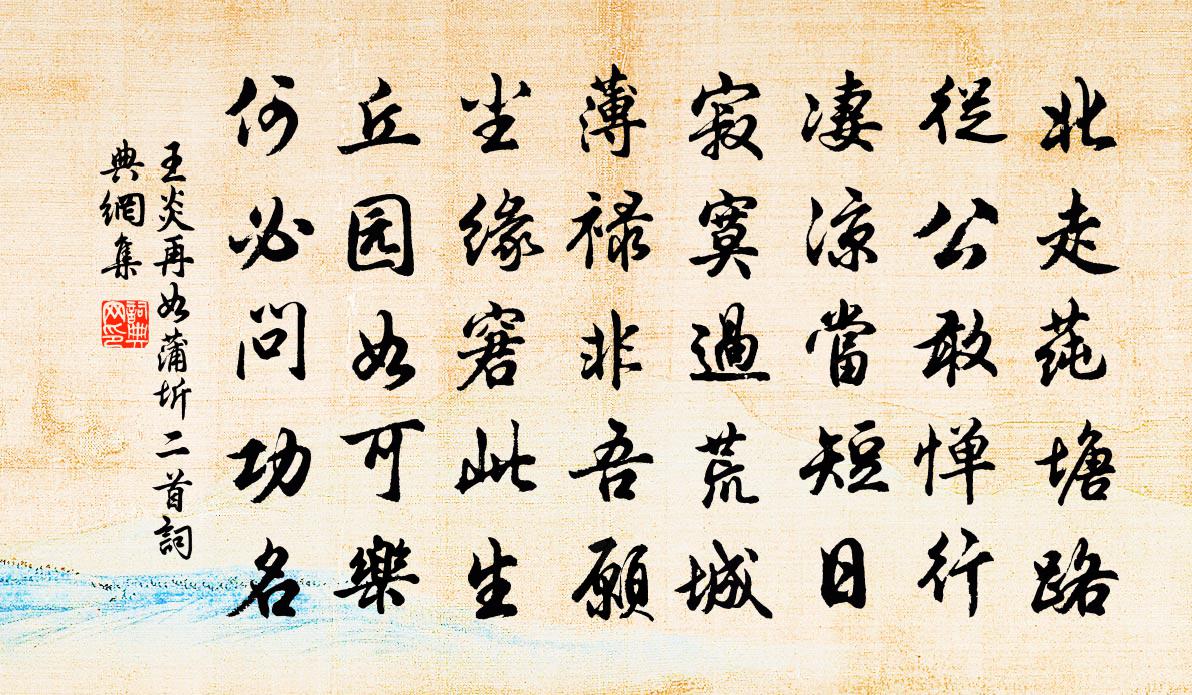 北走莼塘路
從公敢惮行
凄涼當短日
寂寞過荒城
薄禄非吾願
尘缘窘此生
丘园如可樂
何必問功名
王炎再如蒲圻二首詞
典網集
詞典网印